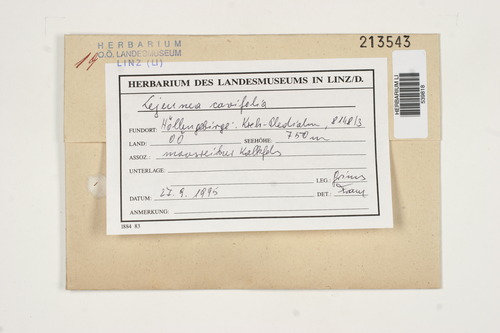 213543
HERBARIUM
O.Ö. LANDESMUSEUM
LINZ (LI)
HERBARIUM LI
539818
HERBARIUM DES LANDESMUSEUMS IN LINZ/D.
Lejeunea cavifolia
FUNDORT: Höllengebirge: 8148/3
LAND: OÖ SEEHÖHE: 750m
ASSOZ.: Kalkfels
UNTERLAGE:
LEG.: Grims
DATUM: 27.9.1995 DET.:
ANMERKUNG:
1884 83